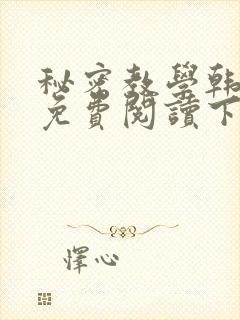 秘密教學韩
免費閱讀下
懌心